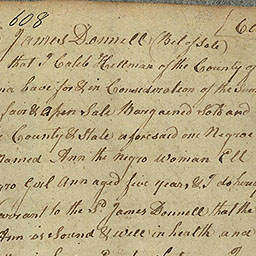 608
James Donnell (Bil of Sale)
that I Caleb Hillman of the County of
na have for & in Consideration of the Sum
fair & open Sale Bargained Sold and
e County & State aforesaid one Negroe
named Ann the negro woman Ell
gro Girl Ann aged five years & I do
warrant to the Sd. James Donnell that the
Ann is Sound & well in health and